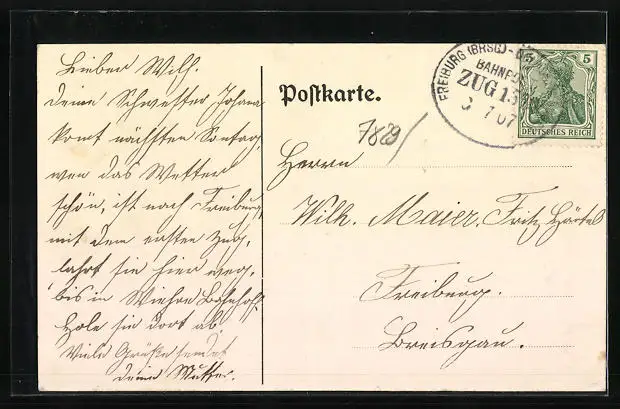 Lieber Wilh.
deine Schwester Johana
komt nächsten Sontag,
wen das Wetter
schön, ist nach Freiburg,
mit dem ersten Zug,
fahrt sie hier weg,
bis in Wiehre Bahnhof
Hole sie dort ab
Viele Grüße sendet
deine Mutter.
Postkarte.
FREIBURG (BRSG)-
BAHNPOST
ZUG
7 07
5
DEUTSCHES REICH
7829
Herrn
Wilh. Maier, Fritz Härtel
Freiburg.
Breisgau.